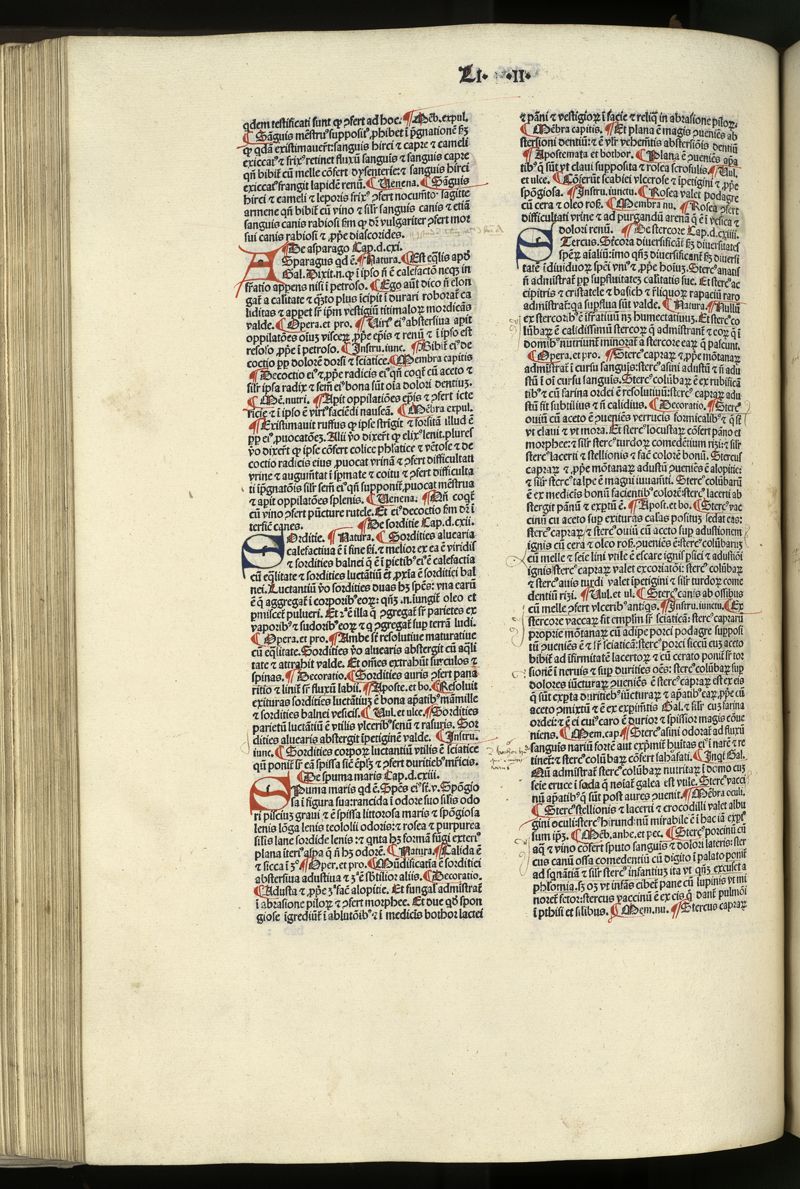 LI· ·II·
qdem testificati sunt qꝫ ꝯfert ad hoc. ¶ Mẽb. expul.
¶ Sãguis mẽstru᷒ supposit᷒, phibet ĩ p̃gnationẽ
qp qdã existimauer̃t: sanguis hirci et capre et cameli
exiccat᷒ et frix᷒ retinet fluxũ sanguis et sanguis capre
qñ bibit̃ cũ melle cõfert dysenterie: et sanguis hirci
exiccat᷒ frangit lapidẽ renũ. ¶ Uenena. ¶ Sãguis
hirci et cameli et leporis frix᷒ ꝯfert nocumẽto sagitte
armene qñ bibit̃ cũ vino et sil̃r sanguis canis et etiã
sanguis canis rabiosi ẽm qp dr̃ vulgariter ꝯfert mor
sui canis rabiosi et ꝓpe diascorides.
¶ De asparago Cap. d. cxi.
ASparagus qd ẽ. ¶ Natura. ¶ Est eq̃lis apd̃
Gal. Dixit. n. qp ĩ ipso ñ ẽ calefactõ neqꝫ in
frigidatio appens nisi ĩ petroso. ¶ Ego aũt dico ñ elon
gat̃ a caliditate et q̃to plus ĩcipit ĩ durari roborat̃ ca
liditas et appet̃ sr̃ ipm vestigiũ titimalor̃ mordicãs
valde. ¶ Opera. et pro. ¶ Uirt᷒ ei᷒ abstersiua apit
oppilatões oĩuꝫ viscerꝫ, ꝓpe epĩs et renũ et ĩ ipso est
resoso, ꝓpe ĩ petroso. ¶ Instru. iunc. ¶ Bibit̃ ei᷒ de
coctio pp dolorẽ dorsi et sciatice. ¶ Membra capitis
¶ Decoctio ei᷒ et, ꝓpe radicis ei᷒ qñ coqt̃ cũ aceto et
sil̃r ipsa radix et semẽ ei᷒ bona sũt oĩa dolori dentiuꝫ.
¶ Mẽ. nutri. ¶ Apit oppilatiões epĩs et ꝯfert icte
ricie et ĩ ipso ẽ virt᷒ faciẽdi nauseã. ¶ Mẽbra expul.
¶ Existimauit ruffus qp ipse strigit et forsitã illud ẽ
pp ei᷒, puocatõeꝫ. Alii ṽo dixer̃t qp elix᷒ lenit. plures
ṽo dixer̃t qp ipse cõfert colice phl̃atice et vẽtose et de
coctio radicis eius, puocat vrinã et ꝯfert difficultati
vrine et augumẽtat ĩ spmate et coitu et ꝯfert difficulta
ti ĩp̃gnatõis sil̃r semẽ ei᷒ qñ supponit̃, puocat mẽstrua
et apit oppilatões splenis. ¶ Uenena. ¶ Qñ coqt̃
cũ vino ꝯfert pũcture rutele. Et ei᷒ decoctio ẽm dr̃ ĩ
terficẽ canes. ¶ De sorditie Cap. d. cxii.
SOrditie. ¶ Natura. ¶ Sordities aluearia
calefactiua ẽ ĩ fine sc̃i. et melior ex ea ẽ viridis
et sordities balnei qp ẽ ĩ pietib᷒ ei᷒ ẽ calefactia
cũ eq̃litate et sordities luctãtiũ ẽt, pxĩa ẽ sorditici bal
nei. Luctantiũ ṽo sordities duas hꝫ spẽs: vna earũ
ẽ q̃ aggregat̃ ĩ corporib᷒ eorꝫ: qñꝫ. n. iungit̃ oleo et
pmiscet̃ pulueri. Et 2ᵃ ẽ illa q̃ ꝯgregat̃ sr̃ parietes ex
vaporib᷒ et sudorib᷒ eorꝫ et q̃ ꝯgregat̃ sup terrã ludi.
¶ Opera. et pro. ¶ Ambe st̃ resolutiue maturatiue
cũ eq̃litate. Sordities ṽo aluearis abstergit cũ aq̃li
tate et attrahit valde. Et oẽs extrahũt surculos et
spinas. ¶ Decoratio. ¶ Sordities auris ꝯfert pana
ritio et linit̃ sr̃ fluxũ labii. ¶ Aposte. et bo. ¶ Resoluit
exituras sordities luctãtiuꝫ ẽ bona ap̃atib᷒ mãmille
et sordities balnei vesicis. ¶ Uul. et ulce. ¶ Sordities
parietũ luctãtiũ ẽ vtilis vlcerib᷒ senũ et rasuris. Sor
dities aluearis abstergit ĩpetiginẽ valde. ¶ Instru.
iunc. ¶ Sordities corporꝫ luctantiũ vtilis ẽ sciatice
qñ ponit̃ sr̃ eã spissa sic ẽpl̃ꝫ et ꝯfert duritieb᷒ mr̃icis.
¶ De spuma maris Cap. d. cxiii.
SPuma maris qd ẽ. Spẽs ei᷒ st̃. v. Spõgio
sa ĩ figura sua: rancida ĩ odore suo silis odo
ri pisciuꝫ graui et ẽ spissa littorosa maris et spõgiosa
lenis lõga lenis teololii odoris: et rosea et purpurea
silis lane sordide lenis: et qnta hꝫ formã fũgi exteri᷒
plana ĩteri᷒ aspa q̃ ñ hꝫ odorẽ. ¶ Natura. ¶ Calida ẽ
et sicca ĩ 3°. ¶ Oper. et pro. ¶ Mũdificatia ẽ sorditici
abstersiua adustiua et 3ᵃ ẽ sb̃tilior aliis. ¶ Decoratio.
¶ Adusta et, ꝓpe 3ᵃ fac̃ alopitie. Et fungal̃ admĩstrat̃
ĩ abrasione pilorꝫ et ꝯfert morphee. Et due qd̃ spon
giose ĩgrediũt̃ ĩ ablutõib᷒ et ĩ medicĩs bothor lactei
et pãni et vestigiorꝫ ĩ facie et reliq̃ in abrasione pilorꝫ.
¶ Mẽbra capitis. ¶ Et plana ẽ magis ꝯueniẽs ab
stersioni dentiũ: et ẽ vsr̃ vehemẽtis abstersiõis dentiũ
¶ Apostemata et bothor. ¶ Plana ẽ ꝯueniẽs apa
tib᷒ q̃ sũt vt claui supposita et rosea scrofulis. ¶ Uul.
et ulce. ¶ Cõferũt scabiei vlcerose et ĩpetigini et, ꝓpe
spõgiosa. ¶ Instru. iunctu. ¶ Rosea valet podagre
cũ cera et oleo rosꝫ. ¶ Membra nu. ¶ Rosea ꝯfert
difficultati vrine et ad purgandũ arenã q̃ ẽ ĩ vesica et
dolori renũ. ¶ De stercore Cap. d. cxiiii.
STercus. Stercora diuersificãt̃ ẽm diuersitatẽ
spẽꝝ aĩaliũ: imo qñꝫ diuersificant̃ ẽm diuersi
tatẽ ĩdiuiduorꝫ spẽi vni᷒ et, ꝓpe hoĩuꝫ. Sterc᷒ anatis
ñ admĩstrat̃ pp supfluitatẽ caliditatis sue. Et sterc᷒ ac
cipitris et cristatele et basich et r̃liquorꝫ rapaciũ raro
admĩstrat̃: qa supflua sũt valde. ¶ Natura. ¶ Nullũ
ex stercorib᷒ ẽ ĩfrigidatiuũ nꝫ humectatiuuꝫ. Et sterc᷒ co
lũbarꝫ ẽ calidissimũ stercorꝫ q̃ admĩstrant̃ et eorꝫ q̃ ĩ
domib᷒ nutriunt̃ minorat̃ a stercore earꝫ q̃ pascunt̃.
¶ Opera. et pro. ¶ Sterc᷒ caprarꝫ et, ꝓpe mõtanarꝫ
admĩstrat̃ ĩ cursu sanguis: sterc᷒ asini adustũ et ñ adu
stũ ĩ oĩ cursu sanguis. Sterc᷒ colũbarꝫ ẽ ex rubificã
tib᷒ et cũ farina ordei ẽ resolutiuũ: sterc᷒ caprarꝫ adu
stũ fit subtilius et ñ calidius. ¶ Decoratio. ¶ Sterc᷒
ouiũ cũ aceto ẽ ꝯueniẽs verrucis formicalib᷒ et q̃ st̃
vt claui et vt mora. Et sterc᷒ locustarꝫ cõfert pãno et
morphee: et sil̃r sterc᷒ turdorꝫ comedẽtium rizi: et sil̃r
sterc᷒ lacerti et stellionis et fac̃ colorẽ bonũ. Stercus
caprarꝫ et, ꝓpe mõtanarꝫ adustũ ꝯueniẽs ẽ alopitiei
et sil̃r sterc᷒ talpe ẽ magni iuuamẽti. Sterc᷒ colũbarũ
ẽ ex medicis bonũ facientib᷒ colorẽ: sterc᷒ lacerti ab
stergit pãnũ et exptũ ẽ. ¶ Apost. et bo. ¶ Sterc᷒ vac
cinũ cũ aceto sup exituras calidas positũ sedat eas:
sterc᷒ caprarꝫ et sterc᷒ ouiũ cũ aceto sup adustionem
ignis cũ cera et oleo ros. ꝯueniẽs ẽ: sterc᷒ colũbarũ
cũ melle et seie lini vtile ẽ escare ignis psici et adustiõi
ignis: sterc᷒ caprarꝫ valet excoriatõi: sterc᷒ colũbarꝫ
et sterc᷒ auis turdi valet ĩpetigini et sil̃r turdorꝫ come
dentiũ rizi. ¶ Uul. et ul. ¶ Sterc᷒ canis ab ossibus
cũ melle ꝯfert vlcerib᷒ antiq̃s. ¶ Instru. iunctu. ¶ Ex
stercore vaccarꝫ fit emplm̃ sr̃ sciaticã: sterc᷒ caprarũ
proprie mõtanarꝫ cũ adipe porci podagre supposi
tũ ꝯueniẽs ẽ et sr̃ sciaticã: sterc᷒ porci siccũ cuꝫ aceto
bibit̃ ad ĩfirmitatẽ lacertorꝫ et cũ cerato ponit̃ sr̃ tor
sionẽ ĩ neruis et sup durities oẽs: sterc᷒ colũbarꝫ sup
dolores iũcturarꝫ ꝯueniẽs ẽ sterc᷒ caprarꝫ est ex eis
q̃ sũt expta duritieb᷒ iũcturarꝫ et ap̃atib᷒ earꝫ, ꝓpe cũ
aceto ꝯmixtũ et ẽ ex expimẽtis Gal. et sil̃r cuꝫ farina
ordei: et ẽ ei cui᷒ caro ẽ durior et spissior magis cõue
niens. ¶ Mem. cap. ¶ Sterc᷒ asini odorat̃ ad fluxũ
sanguis nariũ forte aut expmit̃ hũitas ei᷒ ĩ narẽ et re
tinet̃: et sterc᷒ colũbarꝫ cõfert sahafati. ¶ Inqt Gal.
Nũ admĩstrat̃ sterc᷒ colũbarꝫ nutritarꝫ ĩ domo cuꝫ
seie eruce ĩ soda q̃ noĩat̃ galea est vtile. Sterc᷒ vacci
nũ ap̃atib᷒ q̃ sũt post aures ꝯuenit. ¶ Mẽbra oculi.
¶ Sterc᷒ stellionis et lacerti et crocodilli valet albu
gini oculi: sterc᷒ hirundĩnũ mirabile ẽ ĩ hac ĩã exp̃s
sum ip̃ꝫ. ¶ Mẽb. anhe. et pec. ¶ Sterc᷒ porcinũ cũ
aq̃ et vino cõfert sputo sanguis et dolori lateris: ster
cus canũ ossa comedentiũ cũ digito ĩ palato ponit̃
ad sqnãtiã et sil̃r sterc᷒ infantiuꝫ ita vt qñꝫ excuset a
phlomia. sꝫ oꝫ vt infãs cibet̃ pane cũ lupinis vt mi
noret̃ fetor: stercus vaccinũ ẽ ex eis q̃ dant̃ pulmõi
ĩ pthisi et silibus. ¶ Mem. nu. ¶ Stercus caprarꝫ